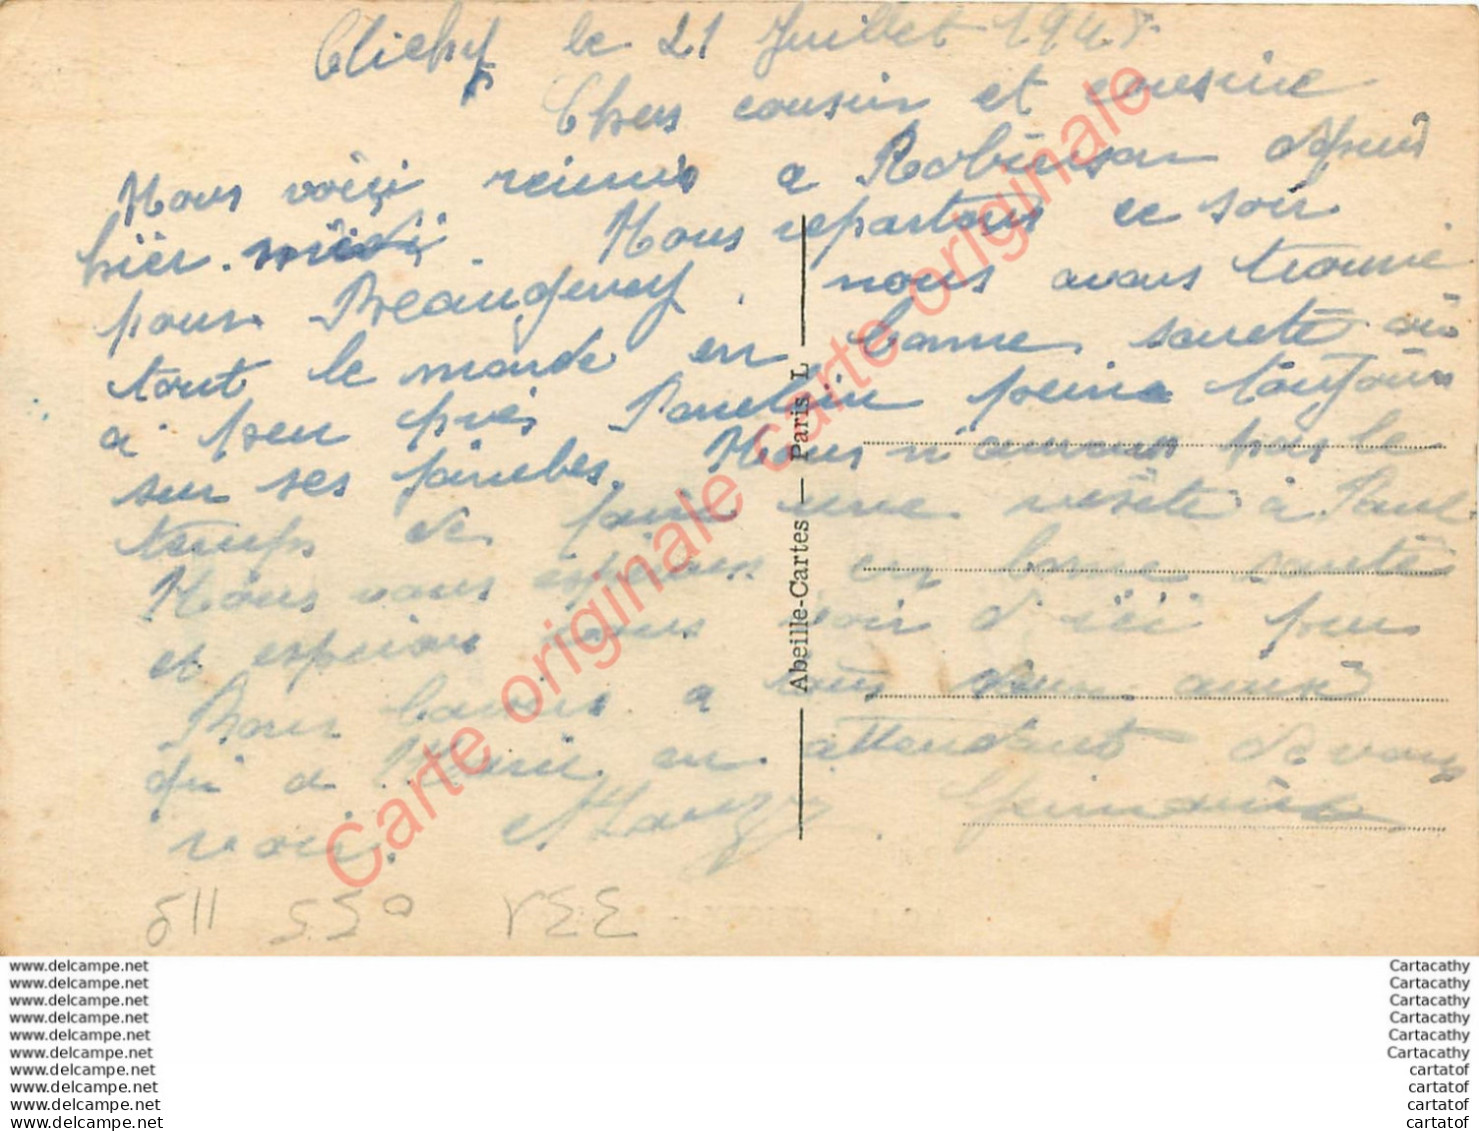 Clichy le 21 Juillet 1948
Chers cousin et cousine
Nous voiçi reunis a Robinson depuis
hier midi Nous repartons ce soir
pour Beaugency, nous avons trouvé
tout le monde en bonne santé ou
a peu près Paulin peine toujours
sur ses jambes. Nous n'aurons pas le
temps de faire une visite à Paul
Nous vous espérons en bonne santé
et espérons vous voir d'içi peu
Bons baisers a tous deux ainsi
qu'a en attendant de vous
voir.
Abeille-Cartes — Paris L
Carte originale carte originale
511 550
www.delcampe.net
www.delcampe.net
www.delcampe.net
www.delcampe.net
www.delcampe.net
www.delcampe.net
www.delcampe.net
www.delcampe.net
www.delcampe.net
www.delcampe.net
Cartacathy
Cartacathy
Cartacathy
Cartacathy
Cartacathy
Cartacathy
cartatof
cartatof
cartatof
cartatof